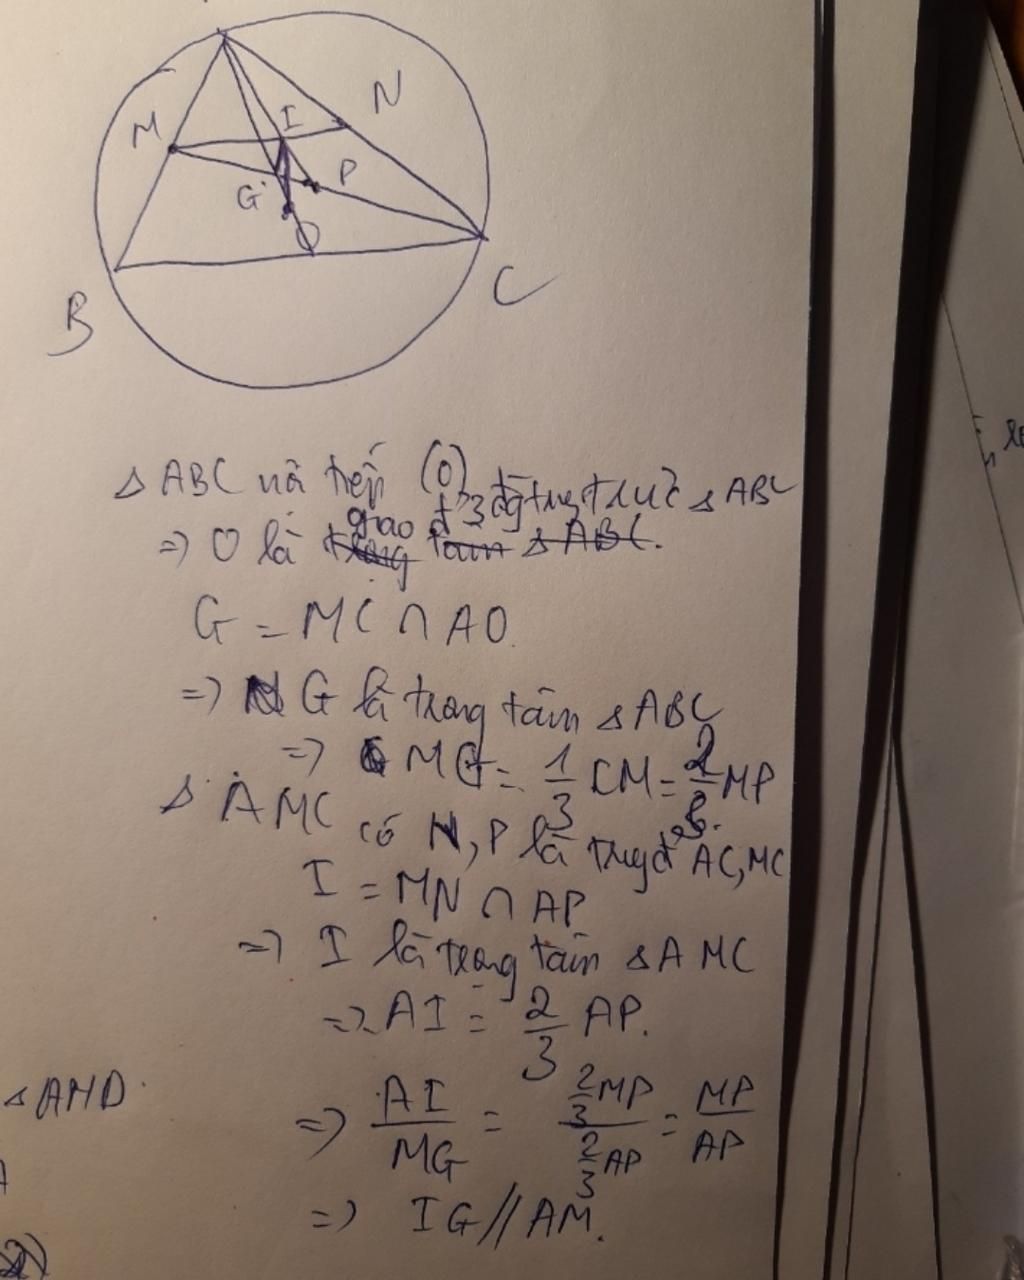 M
I
N
G
P
O
B
C
△ ABC nội tiếp (O)
=> O là giao đ' 3 đg trung trực △ ABC
trọng tâm △ ABC.
G = MC ∩ AO.
=> G là trọng tâm △ ABC
=> MG = 1/3 CM = 2/3 MP
△ AMC có N, P là trung đ' AC, MC
I = MN ∩ AP
=> I là trọng tâm △ AMC
=> AI = 2/3 AP.
△ AHD
=> AI/MG = (2/3 MP)/(2/3 AP) = MP/AP
=> IG // AM.